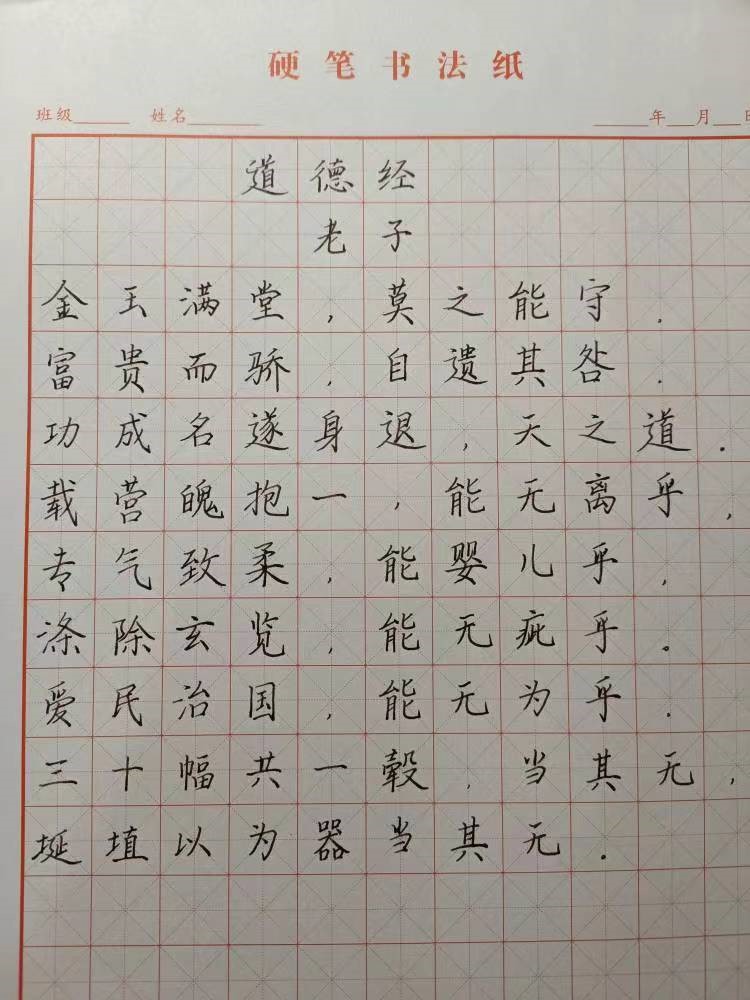 硬笔书法纸
班级 姓名 年 月 日
道德经
老子
金玉满堂，莫之能守．
富贵而骄，自遗其咎．
功成名遂身退，天之道．
载营魄抱一，能无离乎，
专气致柔，能婴儿乎，
涤除玄览，能无疵乎。
爱民治国，能无为乎．
三十幅共一毂，当其无，
埏埴以为器当其无．